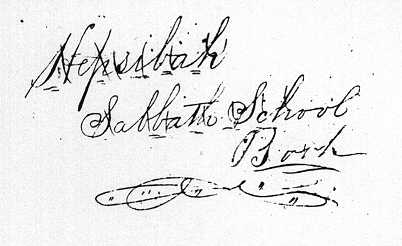 Hepsibah
Sabbath School
Book